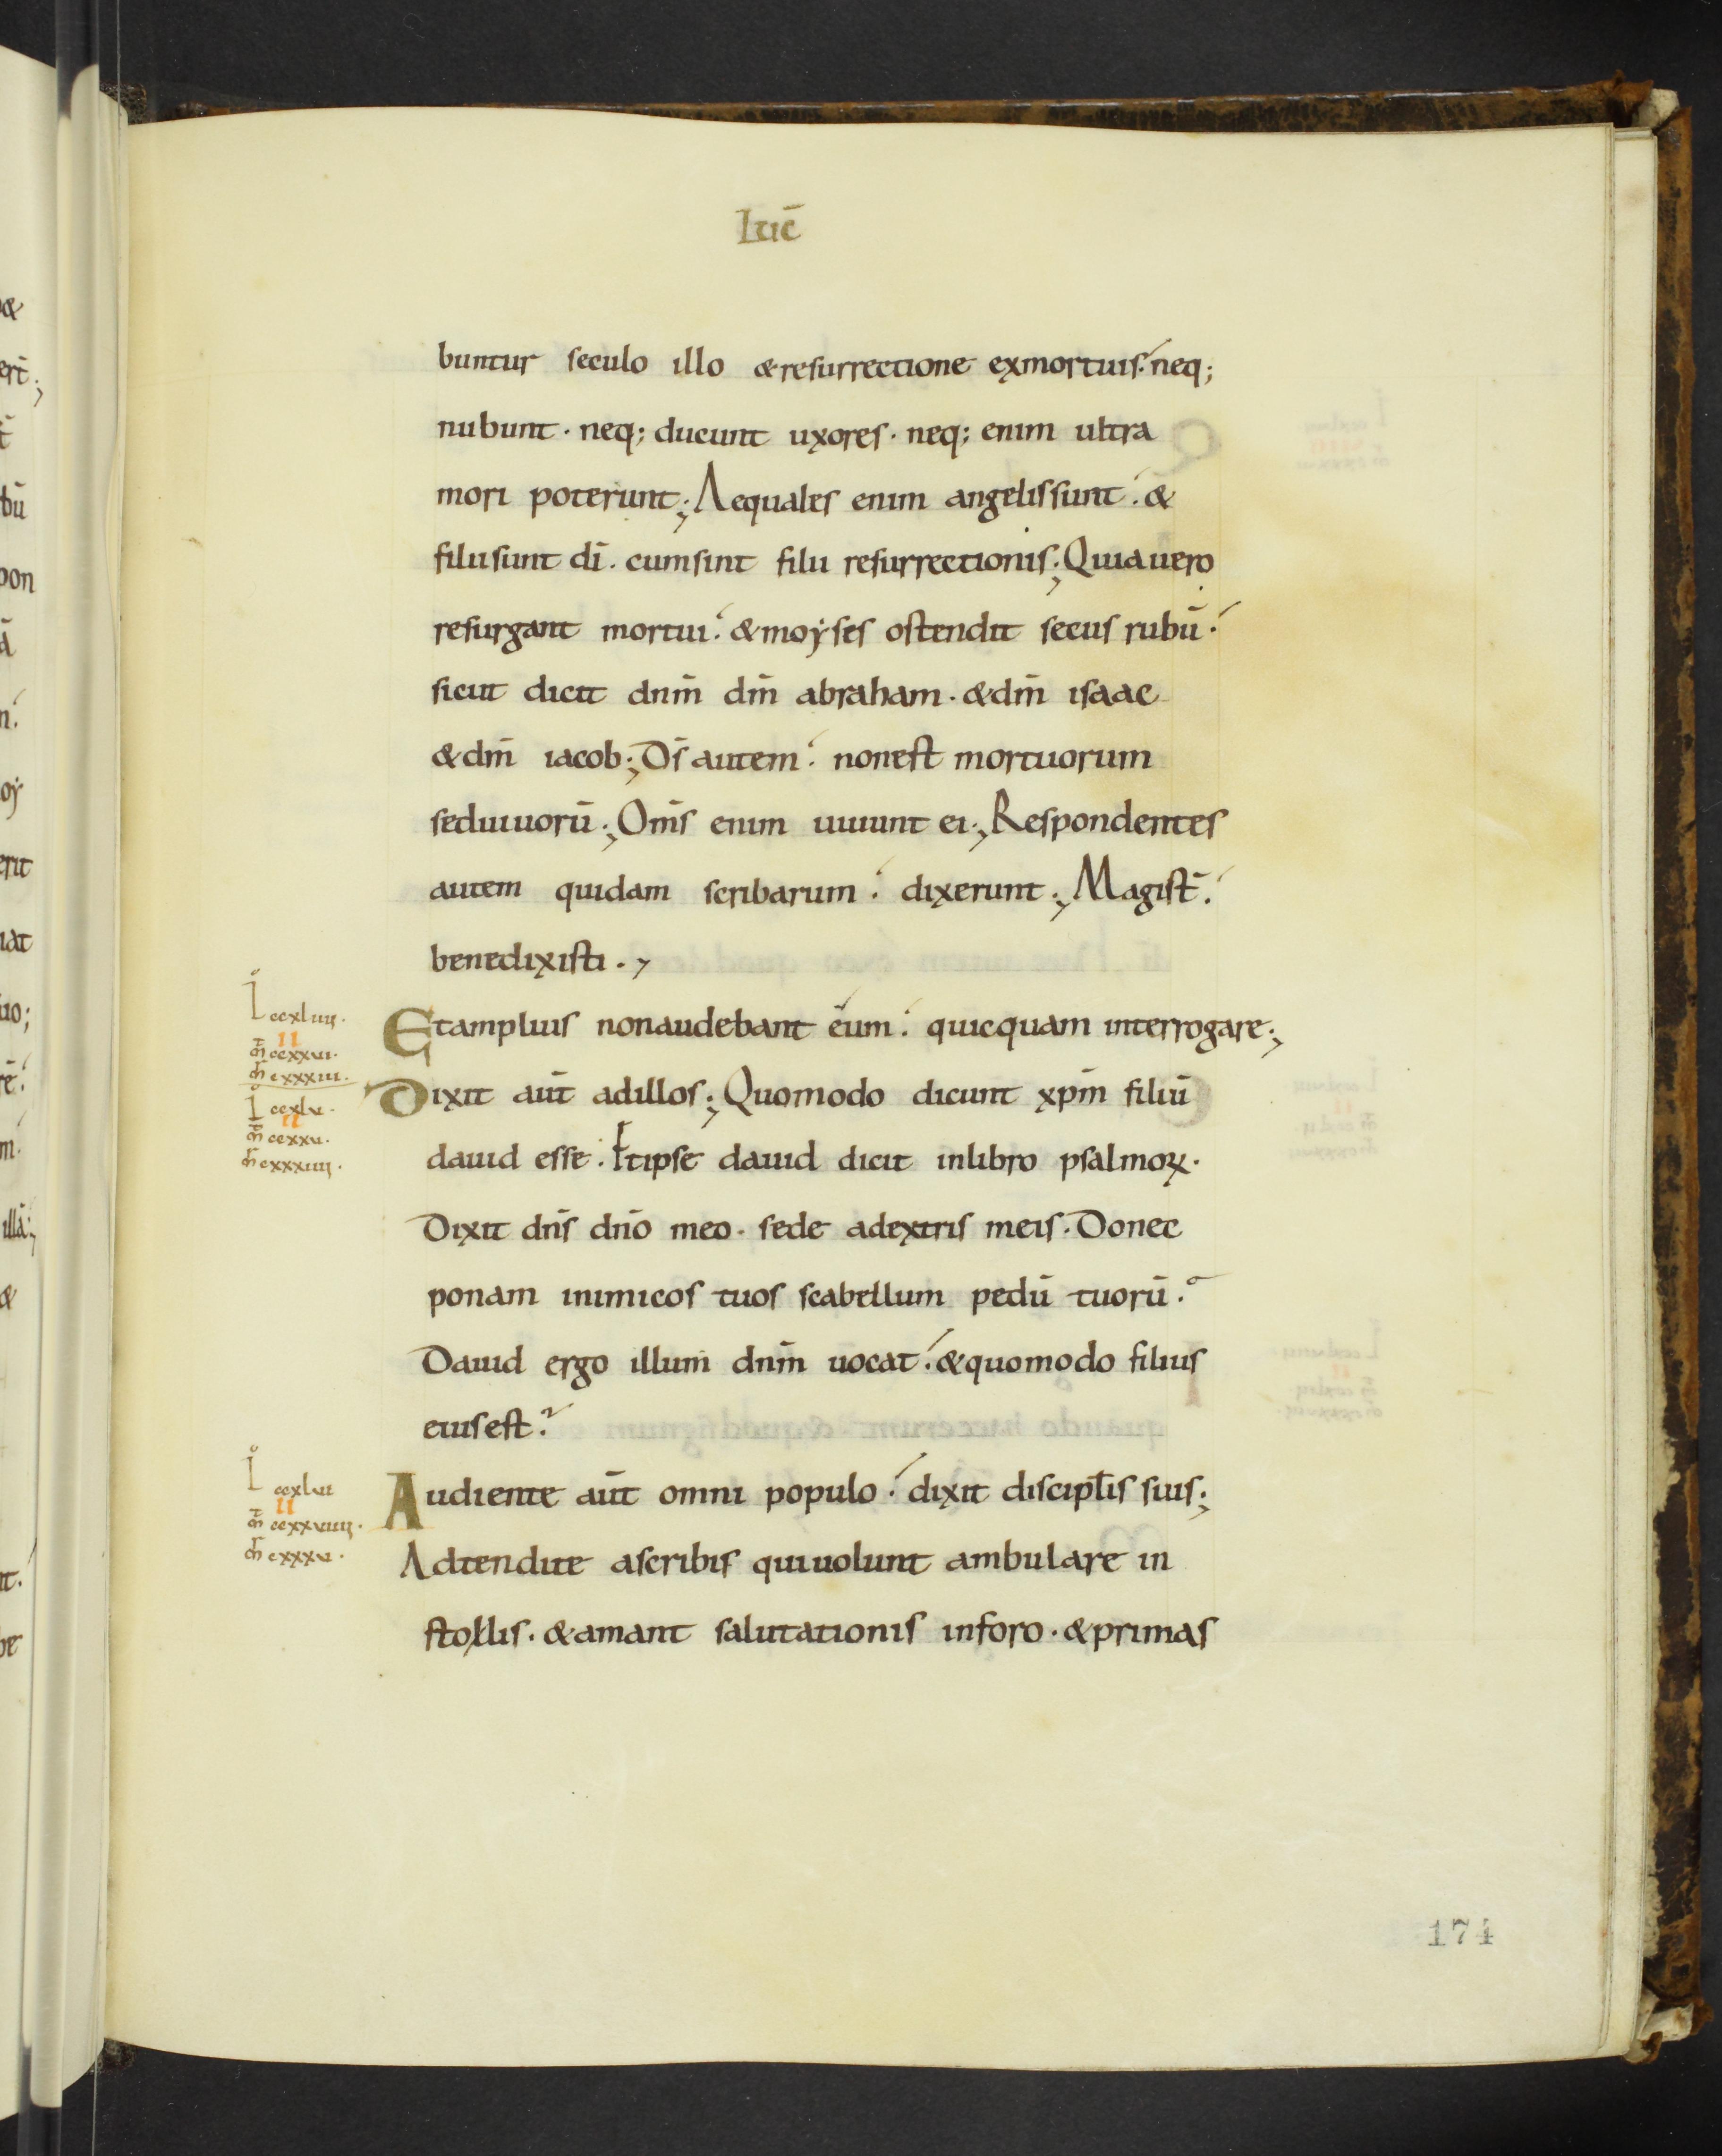 Luc̄
buntur seculo illo & resurrectione exmortuis. neq;
nubunt. neq; ducunt uxores. neq; enim ultra
mori poterunt; Aequales enim angelis sunt. &
filii sunt dī. cum sint filii resurrectionis; Quia uero
resurgant mortui. & moẏses ostendit secus rubū.
sicut dicit dnm̄ dm̄ abraham. & dm̄ isaac
& dm̄ iacob; Ds̄ autem. non est mortuorum
sed uiuorū; Om̄s enim uiuunt ei; Respondentes
autem quidam scribarum. dixerunt; Magist̄.
benedixisti.,
Et amplius non audebant eum. quicquam interrogare;
Dixit aut̄ ad illos; Quomodo dicunt xpm̄ filiū
dauid esse. Et ipse dauid dicit in libro psalmoꝝ.
Dixit dn̄s dn̄o meo. sede adextris meis. Donec
ponam inimicos tuos scabellum pedū tuorū.
Dauid ergo illum dnm̄ uocat. & quomodo filius
eius est?
Audiente aut̄ omni populo. dixit discipl̄is suis;
Adtendite ascribis qui uolunt ambulare in
stollis. & amant salutationis in foro. & primas
L ccxliiii.
II
m̄ ccxxui.
m̄ cxxxiii.
L ccxlu.
II
m̄ ccxxu.
m̄ cxxxiiii.
L ccxlui
II
m̄ ccxxuiiii.
m̄ cxxxu.
174